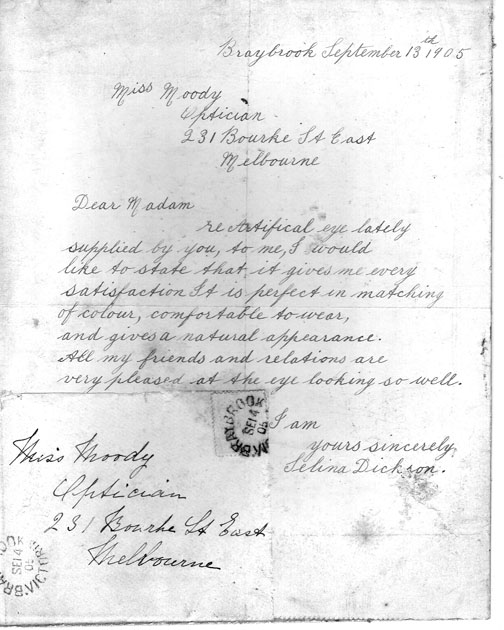 Braybrook September 13th 1905
Miss Moody
Optician
231 Bourke St East
Melbourne
Dear Madam
re Artifical eye lately
supplied by you, to me, I would
like to state that, it gives me every
satisfaction It is perfect in matching
of colour, comfortable to wear,
and gives a natural appearance.
All my friends and relations are
very pleased at the eye looking so well.
I am
yours sincerely
Selina Dickson.
BRAYBROOK
SE 14
05
Miss Moody
Optician
231 Bourke St East
Melbourne
SE 14
05
VICTORIA